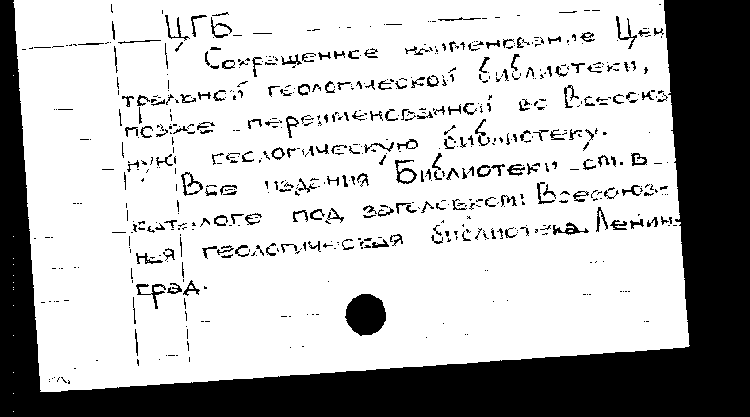 ЦГБ
Сокращенное наименование Цен
тральной геологической библиотеки,
позже переименованной во Всесоюз
ную геологическую библиотеку.
Все издания Библиотеки см. в
каталоге под заголовком: Всесоюз-
ная геологическая библиотека. Ленин-
град.